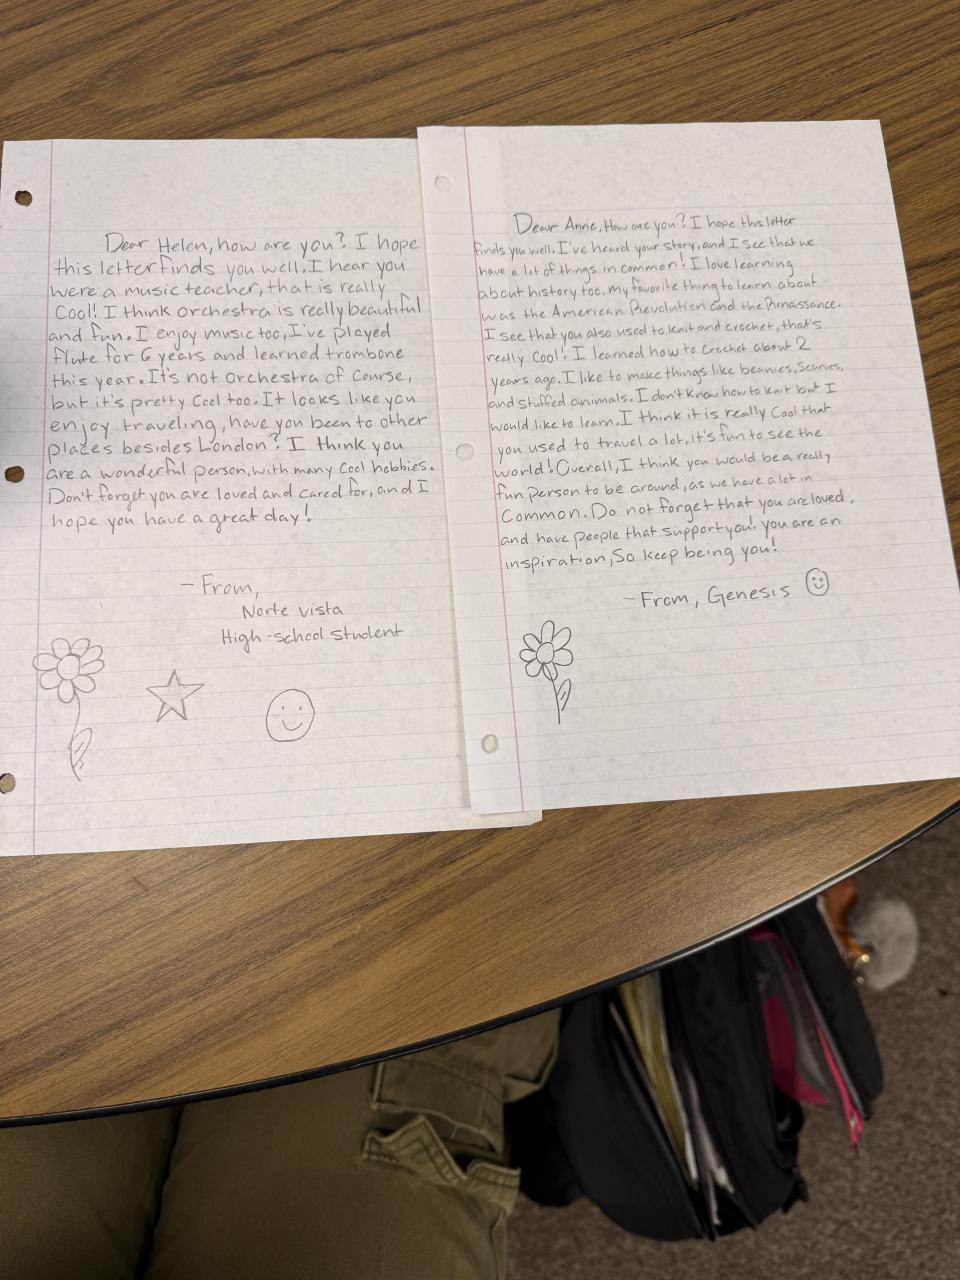 Dear Helen, how are you? I hope
this letter finds you well. I hear you
were a music teacher, that is really
Cool! I think orchestra is really beautiful
and fun. I enjoy music too, I've played
flute for 6 years and learned trombone
this year. It's not orchestra of course,
but it's pretty Cool too. It looks like you
enjoy traveling, have you been to other
places besides London? I think you
are a wonderful person, with many Cool hobbies.
Don't forget you are loved and cared for, and I
hope you have a great day!
- From,
Norte vista
High-school student
Dear Anne, How are you? I hope this letter
finds you well. I've heard your story, and I see that we
have a lot of things in common! I love learning
about history too, my favorite thing to learn about
was the American Revolution and the Renaissance.
I see that you also used to knit and crochet, that's
really Cool! I learned how to Crochet about 2
years ago. I like to make things like beanies, Scarves,
and stuffed animals. I don't know how to knit but I
would like to learn. I think it is really Cool that
you used to travel a lot, it's fun to see the
world! Overall, I think you would be a really
fun person to be around, as we have a lot in
Common. Do not forget that you are loved,
and have people that support you! you are an
inspiration, So keep being you!
- From, Genesis